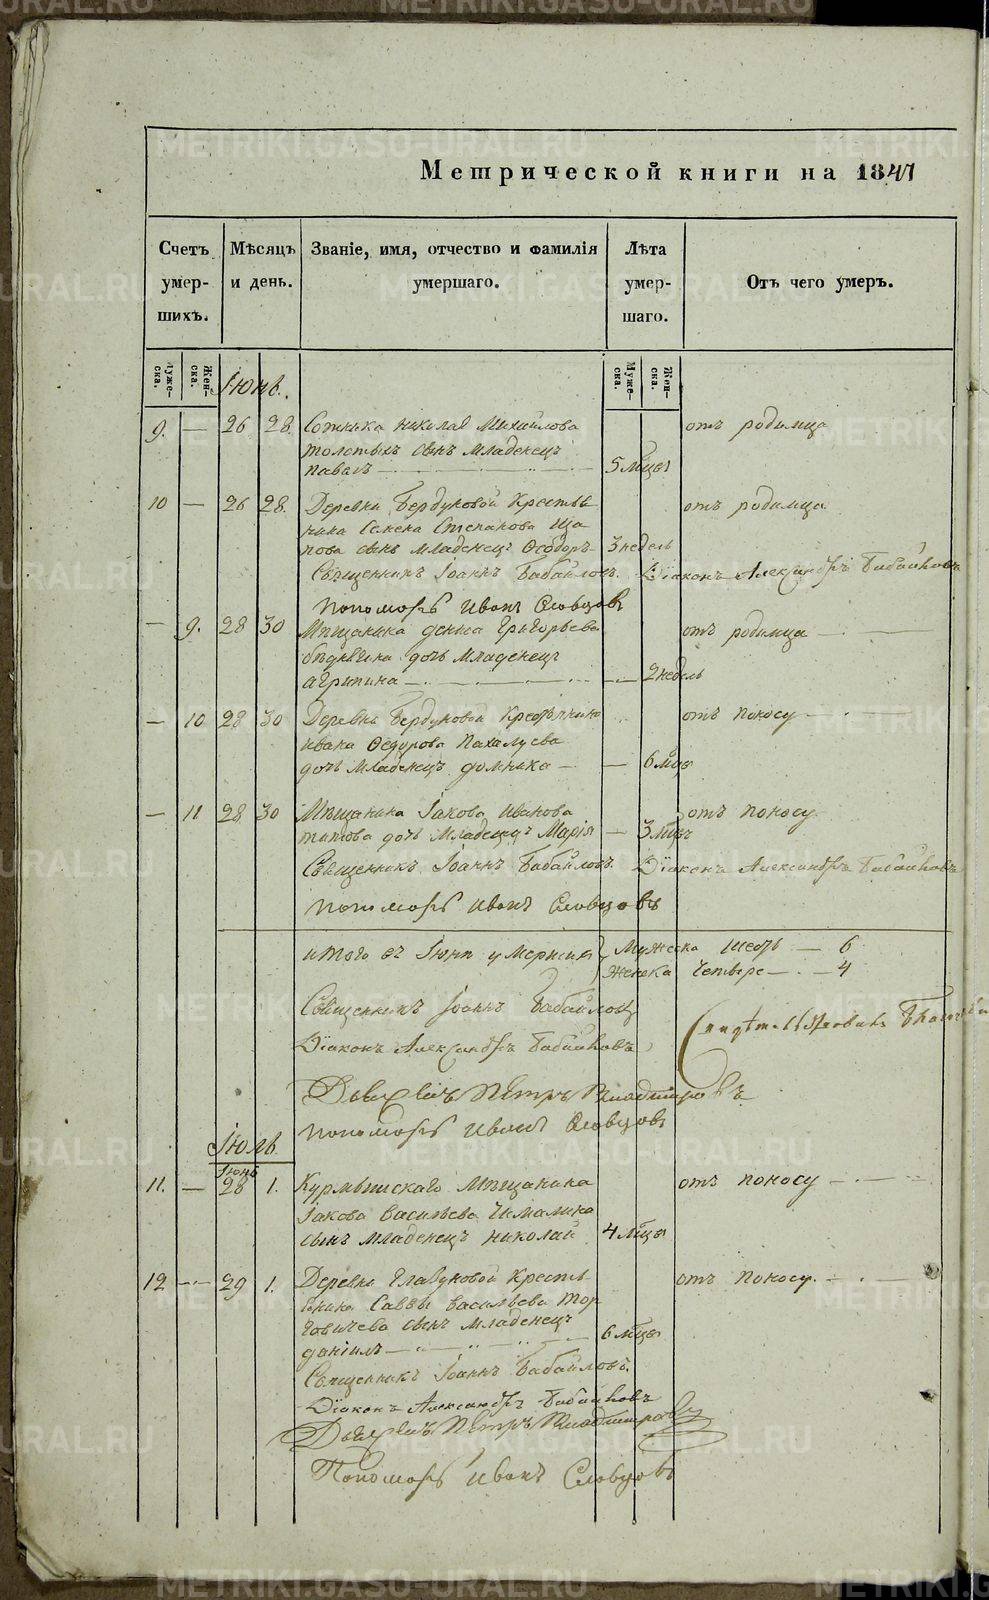 Метрической книги на 1841
Счетъ умер- шихъ.
Мѣсяцъ и день.
Званіе, имя, отчество и фамилія умершаго.
Лѣта умер- шаго.
Отъ чего умеръ.
Муже- ска. Жен- ска. Муже- ска. Жен- ска.
Іюнь.
9. — 26 28 Сотника Николая Михайлова отъ родимца
толстыхъ сынъ младенецъ
павелъ 5 мѣся
10 — 26 28. Деревни Бердуковой Крестья отъ родимца
нина Семена Степанова Ща
пова сынъ младенецъ Ѳеодоръ 3 недель
Священникъ Іоаннъ Бабайловъ. Діаконъ Александръ Бабайловъ
Пономарь Иванъ Словцовъ
— 9. 28 30 Мѣщанина дениса Григорьева отъ родимца
дочь младенецъ
агрипина — 2 недель
— 10 28 30 Деревни Бердуковой Крестьянина отъ поносу
ивана Ѳедорова Пахалуева
дочь младенецъ домника — 6 мѣся
— 11 28 30 Мѣщанина Іакова иванова отъ поносу.
титова дочь младенецъ Марія — 3 мѣся
Священникъ Іоаннъ Бабайловъ. Діаконъ Александръ Бабайловъ
Пономарь Иванъ Словцовъ
итого въ Іюнѣ умерших Мужеска шесть — 6
Женска четыре — 4
Священникъ Іоаннъ Бабайловъ
Діаконъ Александръ Бабайловъ
Петръ Владимировъ
Пономарь Иванъ Словцовъ
Іюль
Іюнь
11. — 28 1. Курмышскаго Мѣщанина отъ поносу
Іакова Васильева
сынъ младенецъ николай 4 мѣся
12 — 29 1. Деревни Глазуновой Кресть отъ поносу.
янина Саввы васильева Тор
говичева сынъ младенецъ
даніилъ 6 мѣся
Священникъ Іоаннъ Бабайловъ.
Діаконъ Александръ Бабайловъ
Петръ Владимировъ
Пономарь Иванъ Словцовъ
METRIKI.GASO-URAL.RU